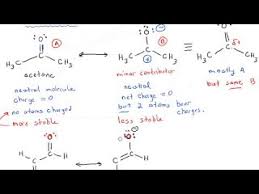 O
O
O δ-
A
B
C
C
C δ+
H₃C CH₃
H₃C CH₃
H₃C CH₃
acetone
minor contributor
mostly A
neutral molecule
neutral
but some B
charge = 0
net charge = 0
no atoms charged
but 2 atoms bear
charges.
more stable
less stable
O
O
C H
C